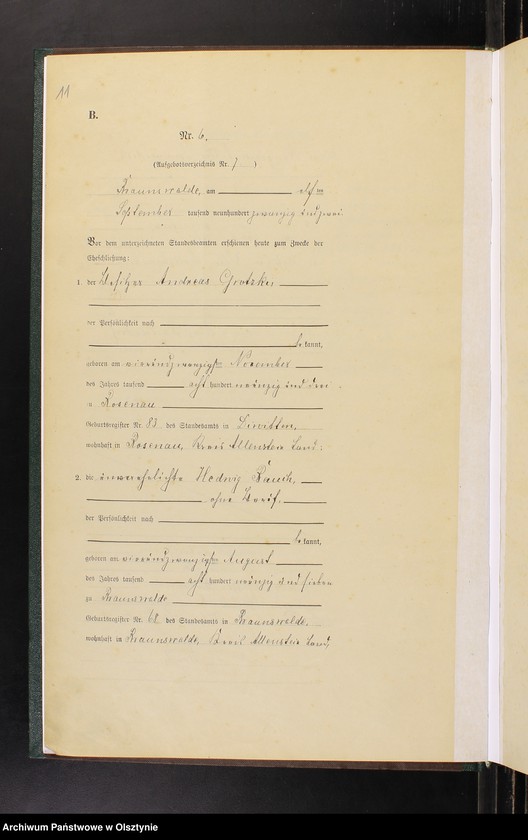 11
B.
Nr. 6.
(Aufgebotsverzeichnis Nr. 7)
Braunswalde, am elften
September tausend neunhundert zwanzig und zwei.
Vor dem unterzeichneten Standesbeamten erschienen heute zum Zwecke der
Eheschließung:
1. der Besitzer Andreas Grotzki
der Persönlichkeit nach
be kannt,
geboren am vierundzwanzigsten November
des Jahres tausend acht hundert neunzig und drei
in Rosenau
Geburtsregister Nr. 83 des Standesamts in Diwitten,
wohnhaft in Rosenau, Kreis Allenstein Land.
2. die unverehelichte Hedwig Rauch,
ohne Beruf,
der Persönlichkeit nach
be kannt,
geboren am vierundzwanzigsten August
des Jahres tausend acht hundert neunzig und sieben
zu Braunswalde
Geburtsregister Nr. 68 des Standesamts in Braunswalde.
wohnhaft in Braunswalde, Kreis Allenstein Land,
Archiwum Państwowe w Olsztynie